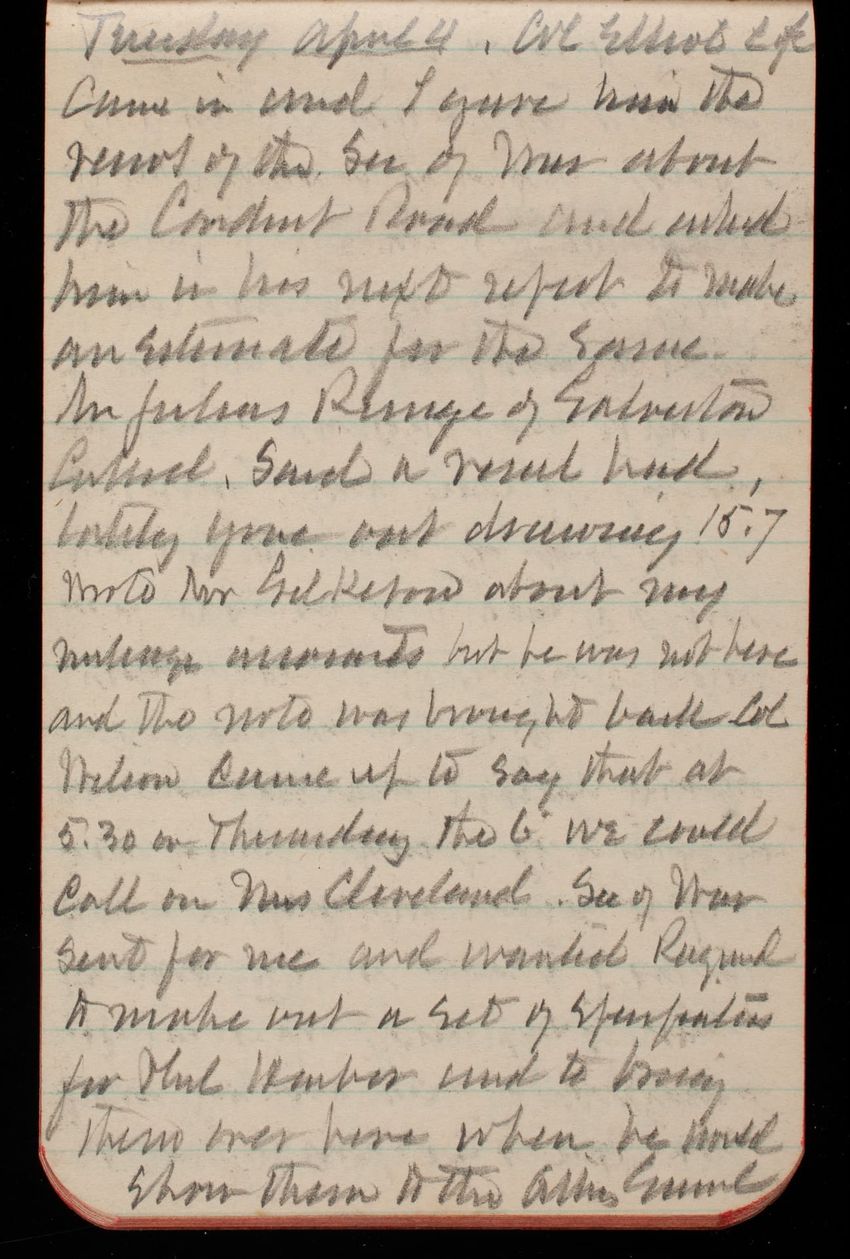 Tuesday April 4. Col Elliot C of E
Came in and I gave him the
views of the Sec of War about
the Conduit Road and asked
him in his next report to make
an estimate for the same.
Mr Julius Runge of Galveston
Called. Said a vessel had,
lately gone out drawing 15.7
Wrote Mr Gilkeson about my
mileage accounts but he was not here
and the note was brought back Col
Wilson Came up to say that at
5.30 on Thursday the 6" we could
Call on Mrs Cleveland. Sec of War
sent for me and wanted Raymond
to make out a set of Specfications
for Phil Harbor and to bring
them over here when he would
show them to the Atty General